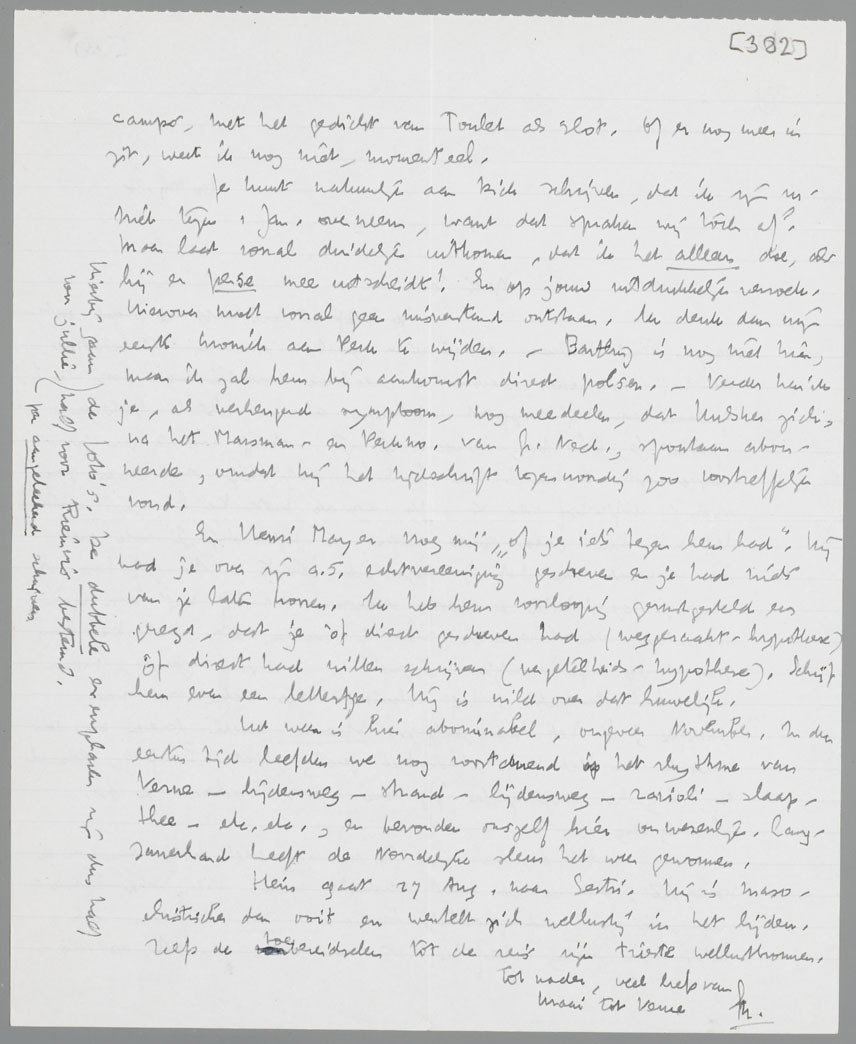 [382]
campo, met het gedicht van Toulet als slot. Of er nog meer in
zit, weet ik nog niet, momenteel.
Je kunt natuurlijk aan Kick schrijven, dat ik zijn
tegen 1 Jan. overneem, want dat spraken wij tòch af?
Maar laat vooral duidelijk uitkomen, dat ik het alleen doe, als
hij er per se mee uitscheidt! En op jouw uitdrukkelijk verzoek.
Hierover moet vooral geen misverstand ontstaan. Ik denk dan mijn
eerste kroniek aan Perk te wijden. – Barthing is nog niet hier,
maar ik zal hem bij aankomst direct polsen. – Verder kan ik
je, als verheugend symptoom, nog meedeelen, dat zich,
na het Marsman- en Perkno. van Gr. Ned., spontaan abon-
neerde, omdat hij het tijdschrift tegenwoordig zoo voortreffelijk
vond.
En Henri Mayer vroeg mij, „of je iets tegen hem had". Hij
had je over zijn a.s. echtvereeniging geschreven en je had niets
van je laten hooren. Ik heb hem voorloopig gerustgesteld en
gezegd, dat je òf direct geschreven had (weggeraakt-hypothese)
òf direct had willen schrijven (vergetelheids-hypothese). Schrijf
hem even een lettertje. Hij is wild over dat huwelijk.
Het weer is hier abominabel, ongeveer November. In den
eersten tijd leefden we nog voortdurend op het rhythme van
Verne – lijdensweg – strand – lijdensweg – ravioli – slaap –
thee – etc. etc., en bevonden onszelf hier onwezenlijk. Lang-
zamerhand heeft de Noordelijke sleur het weer gewonnen.
Hein gaat 27 Aug. naar Sestri. Hij is maso-
chistischer dan ooit en wentelt zich wellustig in het lijden.
Zelfs de toebereidselen tot de reis zijn trieste wellustbronnen.
Tot nader, veel liefs van
huis tot Verne
M.
Hierbij gaan de foto's. De dubbele exemplaren zijn dus half
voor jullie, half voor bestemd.
per aangeteekend schrijven